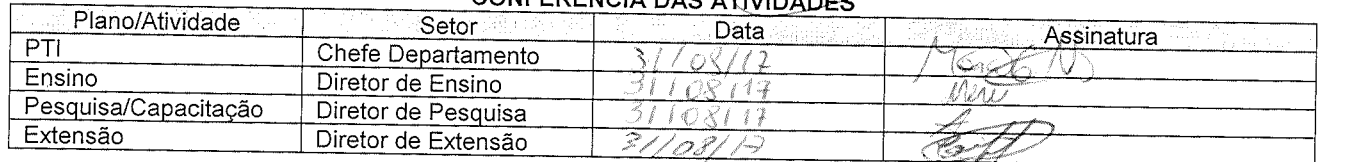 CONFERÊNCIA DAS ATIVIDADES
Plano/Atividade Setor Data Assinatura
PTI Chefe Departamento 31/08/17
Ensino Diretor de Ensino 31/08/17
Pesquisa/Capacitação Diretor de Pesquisa 31/08/17
Extensão Diretor de Extensão 31/08/17